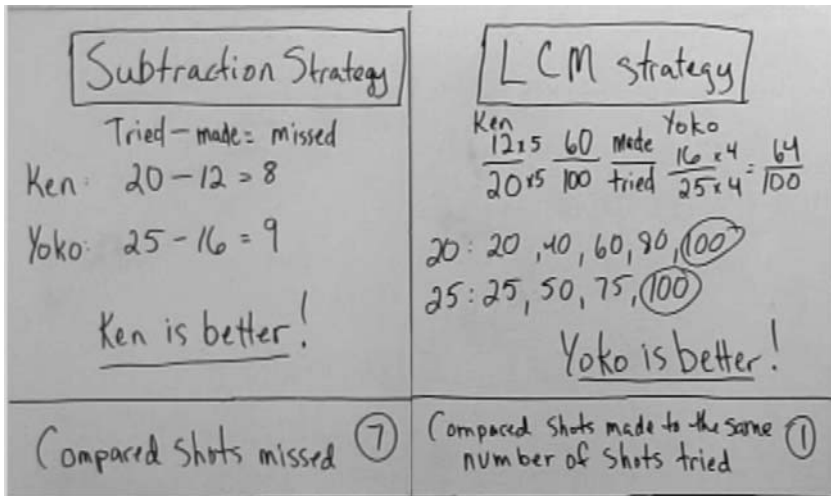 Subtraction Strategy
Tried - made = missed
Ken: 20 - 12 = 8
Yoko: 25 - 16 = 9
Ken is better!
Compared Shots missed 7
LCM strategy
Ken Yoko
12 x5 60 made 16 x 4 64
20 x5 100 tried 25 x 4 = 100
20: 20, 40, 60, 80, 100
25: 25, 50, 75, 100
Yoko is better!
Compared Shots made to the same 1
number of Shots tried